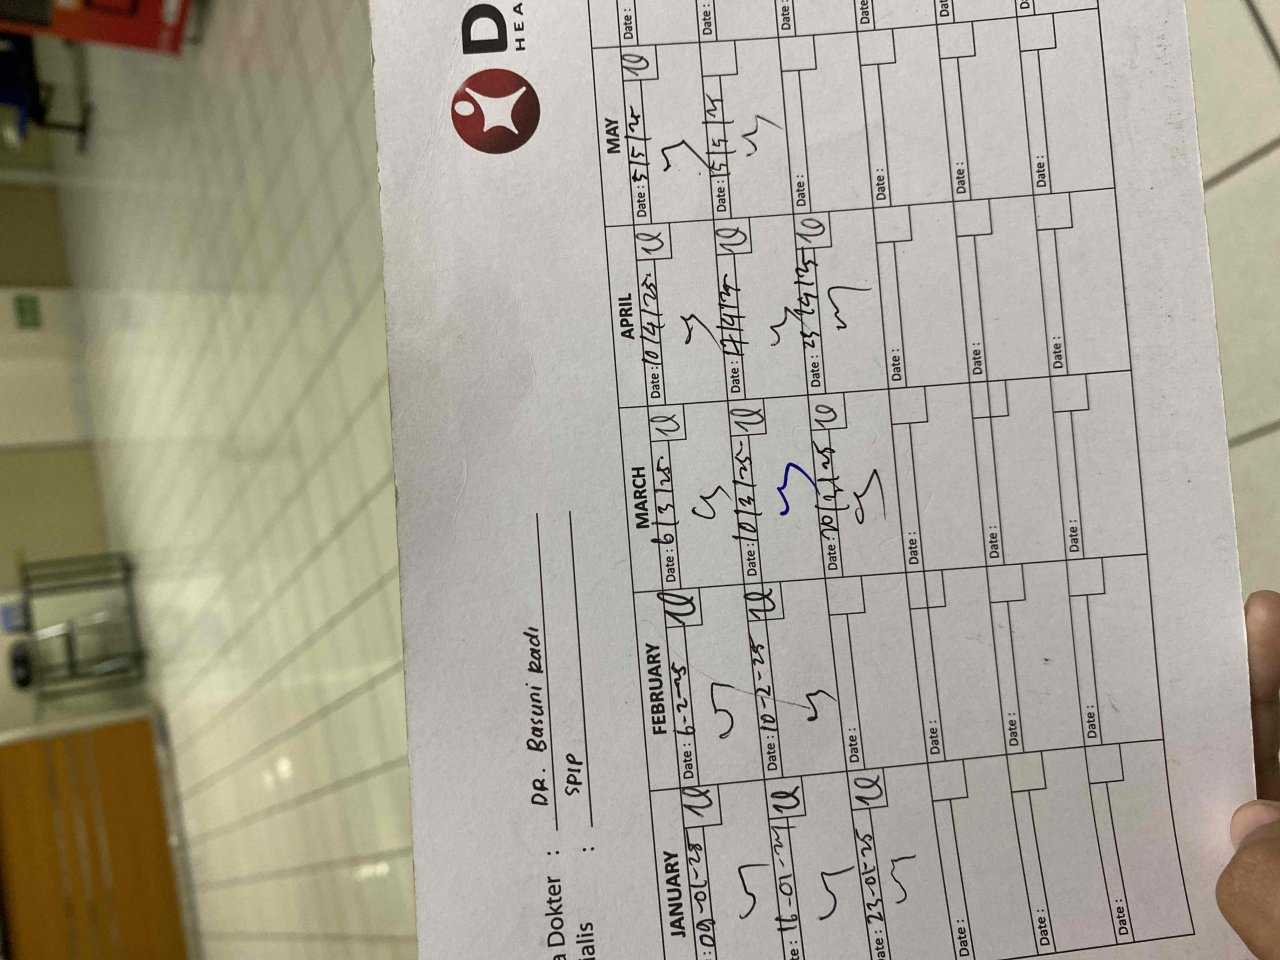 D
HEA
a Dokter : DR. Basuni Radi
ialis : SPJP
JANUARY FEBRUARY MARCH APRIL MAY
: 09-01-25 Date : 6-2-25 Date : 6/3/25 Date : 10/4/25 Date : 5/5/25 Date :
te : 16-01-25 Date : 10-2-25 Date : 10/3/25 Date : 17/4/25 Date : 15/5/25 Date :
ate : 23-01-25 Date : Date : 20/3/25 Date : Date : Date :
Date : Date : Date : Date : Date : Date
Date : Date : Date : Date : Date : Dat
Date : Date : Date : Date : Date : D